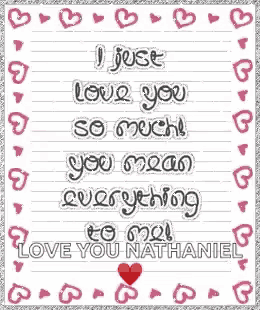 I just
love you
so much!
you mean
everything
to me!
LOVE YOU NATHANIEL